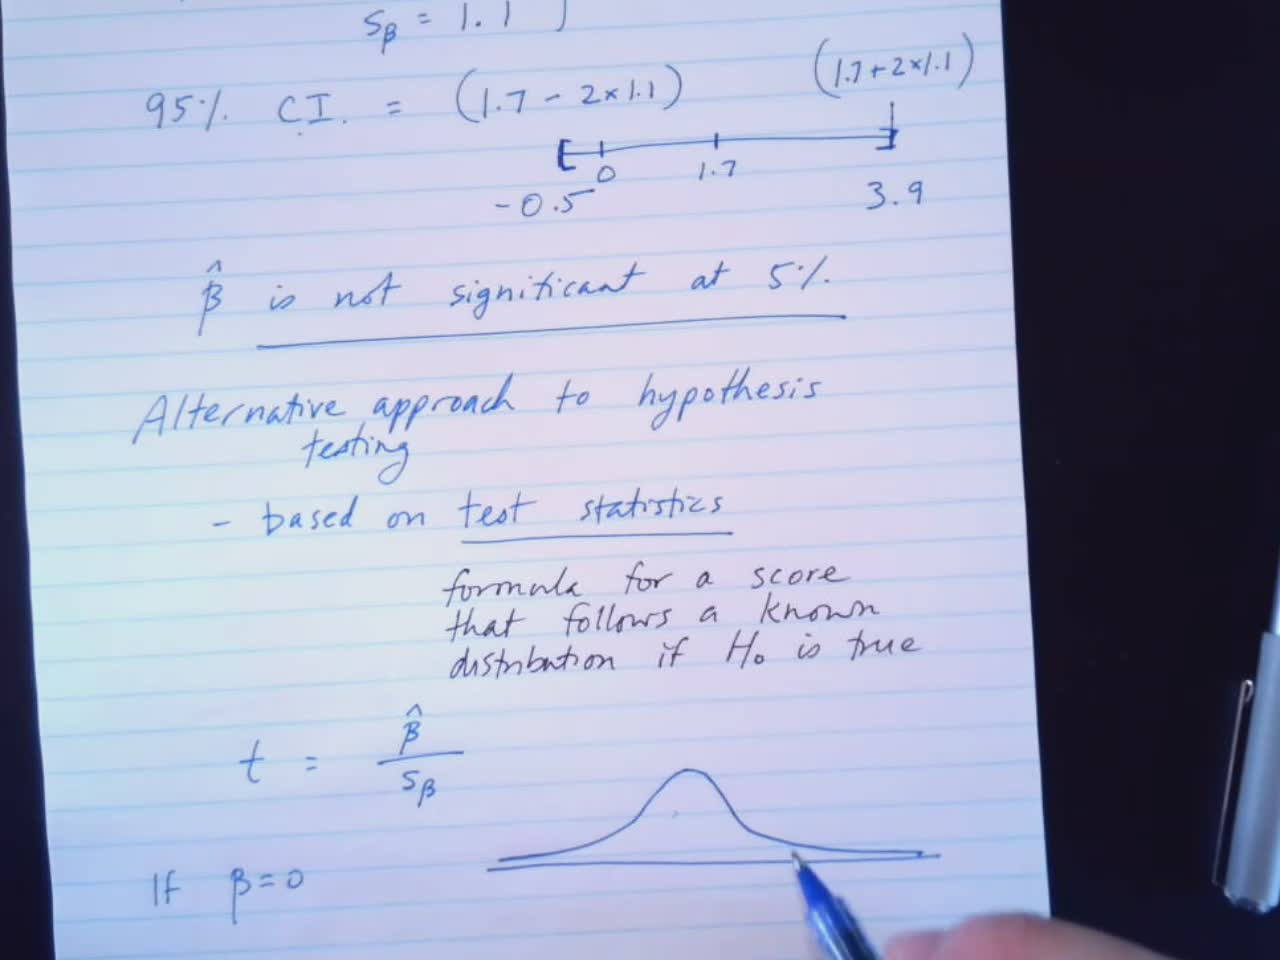 Sβ = 1.1 }
95% C.I. = (1.7 - 2×1.1) (1.7+2×1.1)
0 1.7
-0.5 3.9
β̂ is not significant at 5%.
Alternative approach to hypothesis
testing
- based on test statistics
formula for a score
that follows a known
distribution if H₀ is true
t = β̂ / Sβ
If β=0